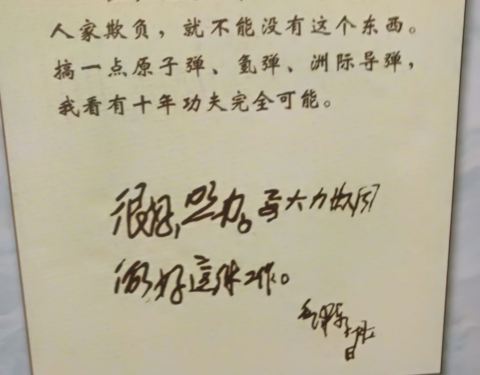 人家欺负，就不能没有这个东西。
搞一点原子弹、氢弹、洲际导弹，
我看有十年功夫完全可能。
很好，照办。要大力协同
做好这件工作。
毛泽东